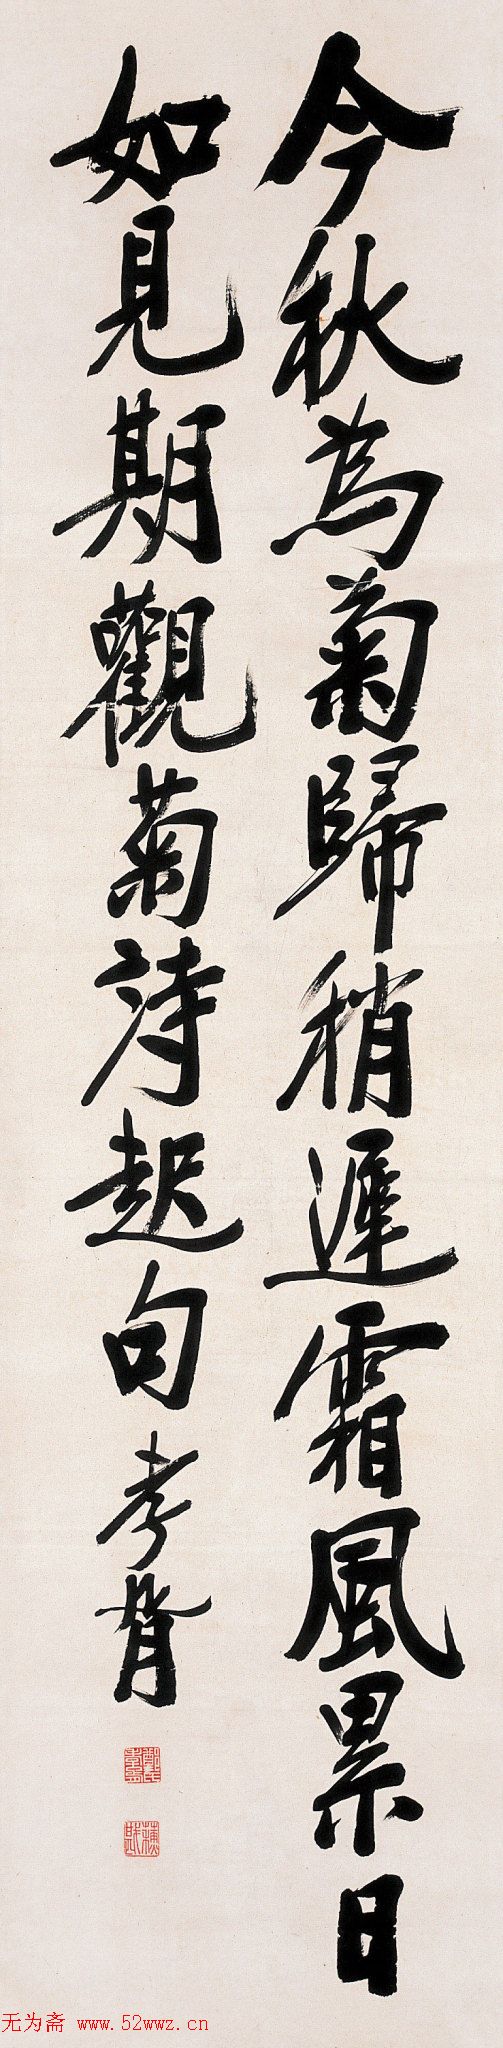 今秋為菊歸稍遲霜風累日
如見期觀菊詩起句孝胥
无为斋 www.52wwz.cn